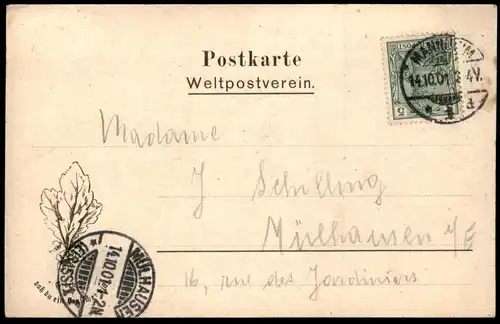 Postkarte
Weltpostverein.
MANNHEIM
14.10.01. 3-4V.
5
Madame
J. Schilling
Mülhausen i/E
16, rue des Jardiniers
MÜLHAUSEN
14.10.01.1-2N.
daß du ein